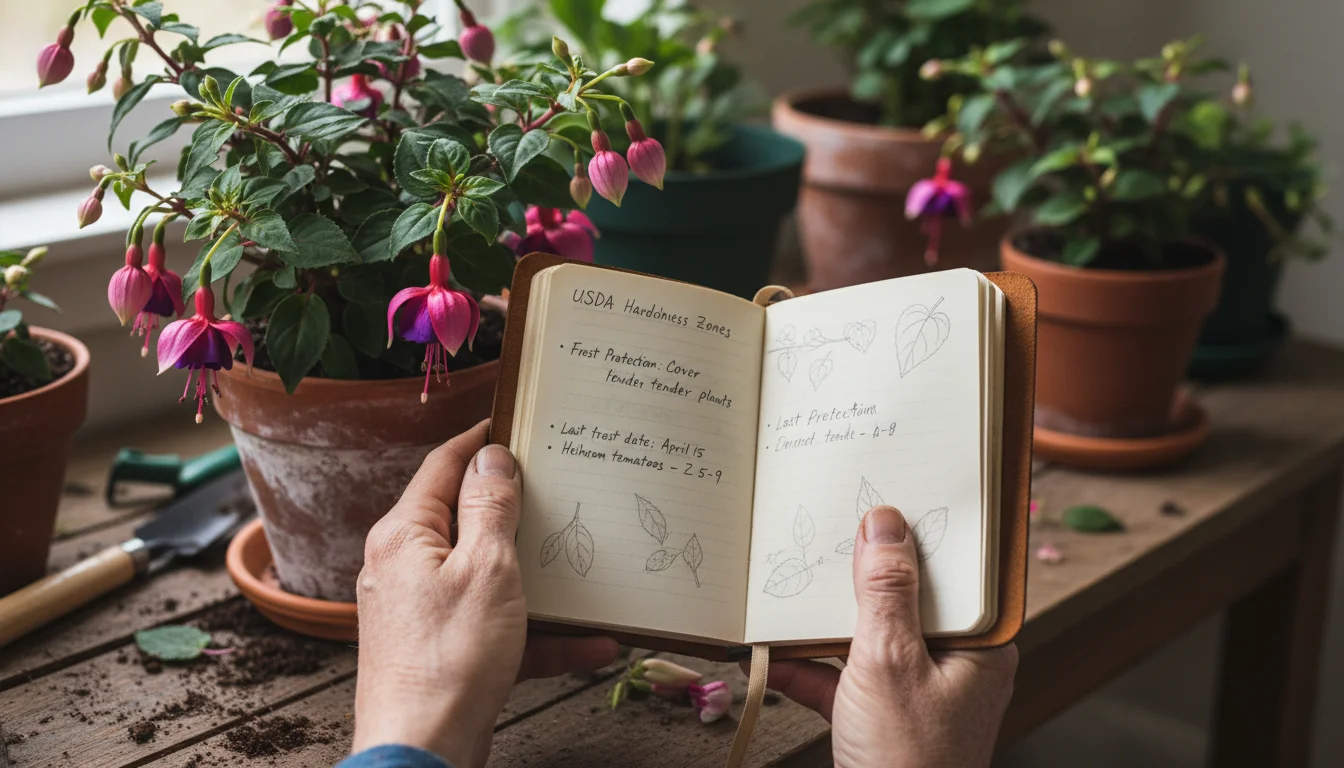 USDA Hardohness Zones
• Frest Protectian: Cover
tender tender plants
• Last frost date: April 15
• Heihrom tematoes – Z 5-9
• Last Pretections